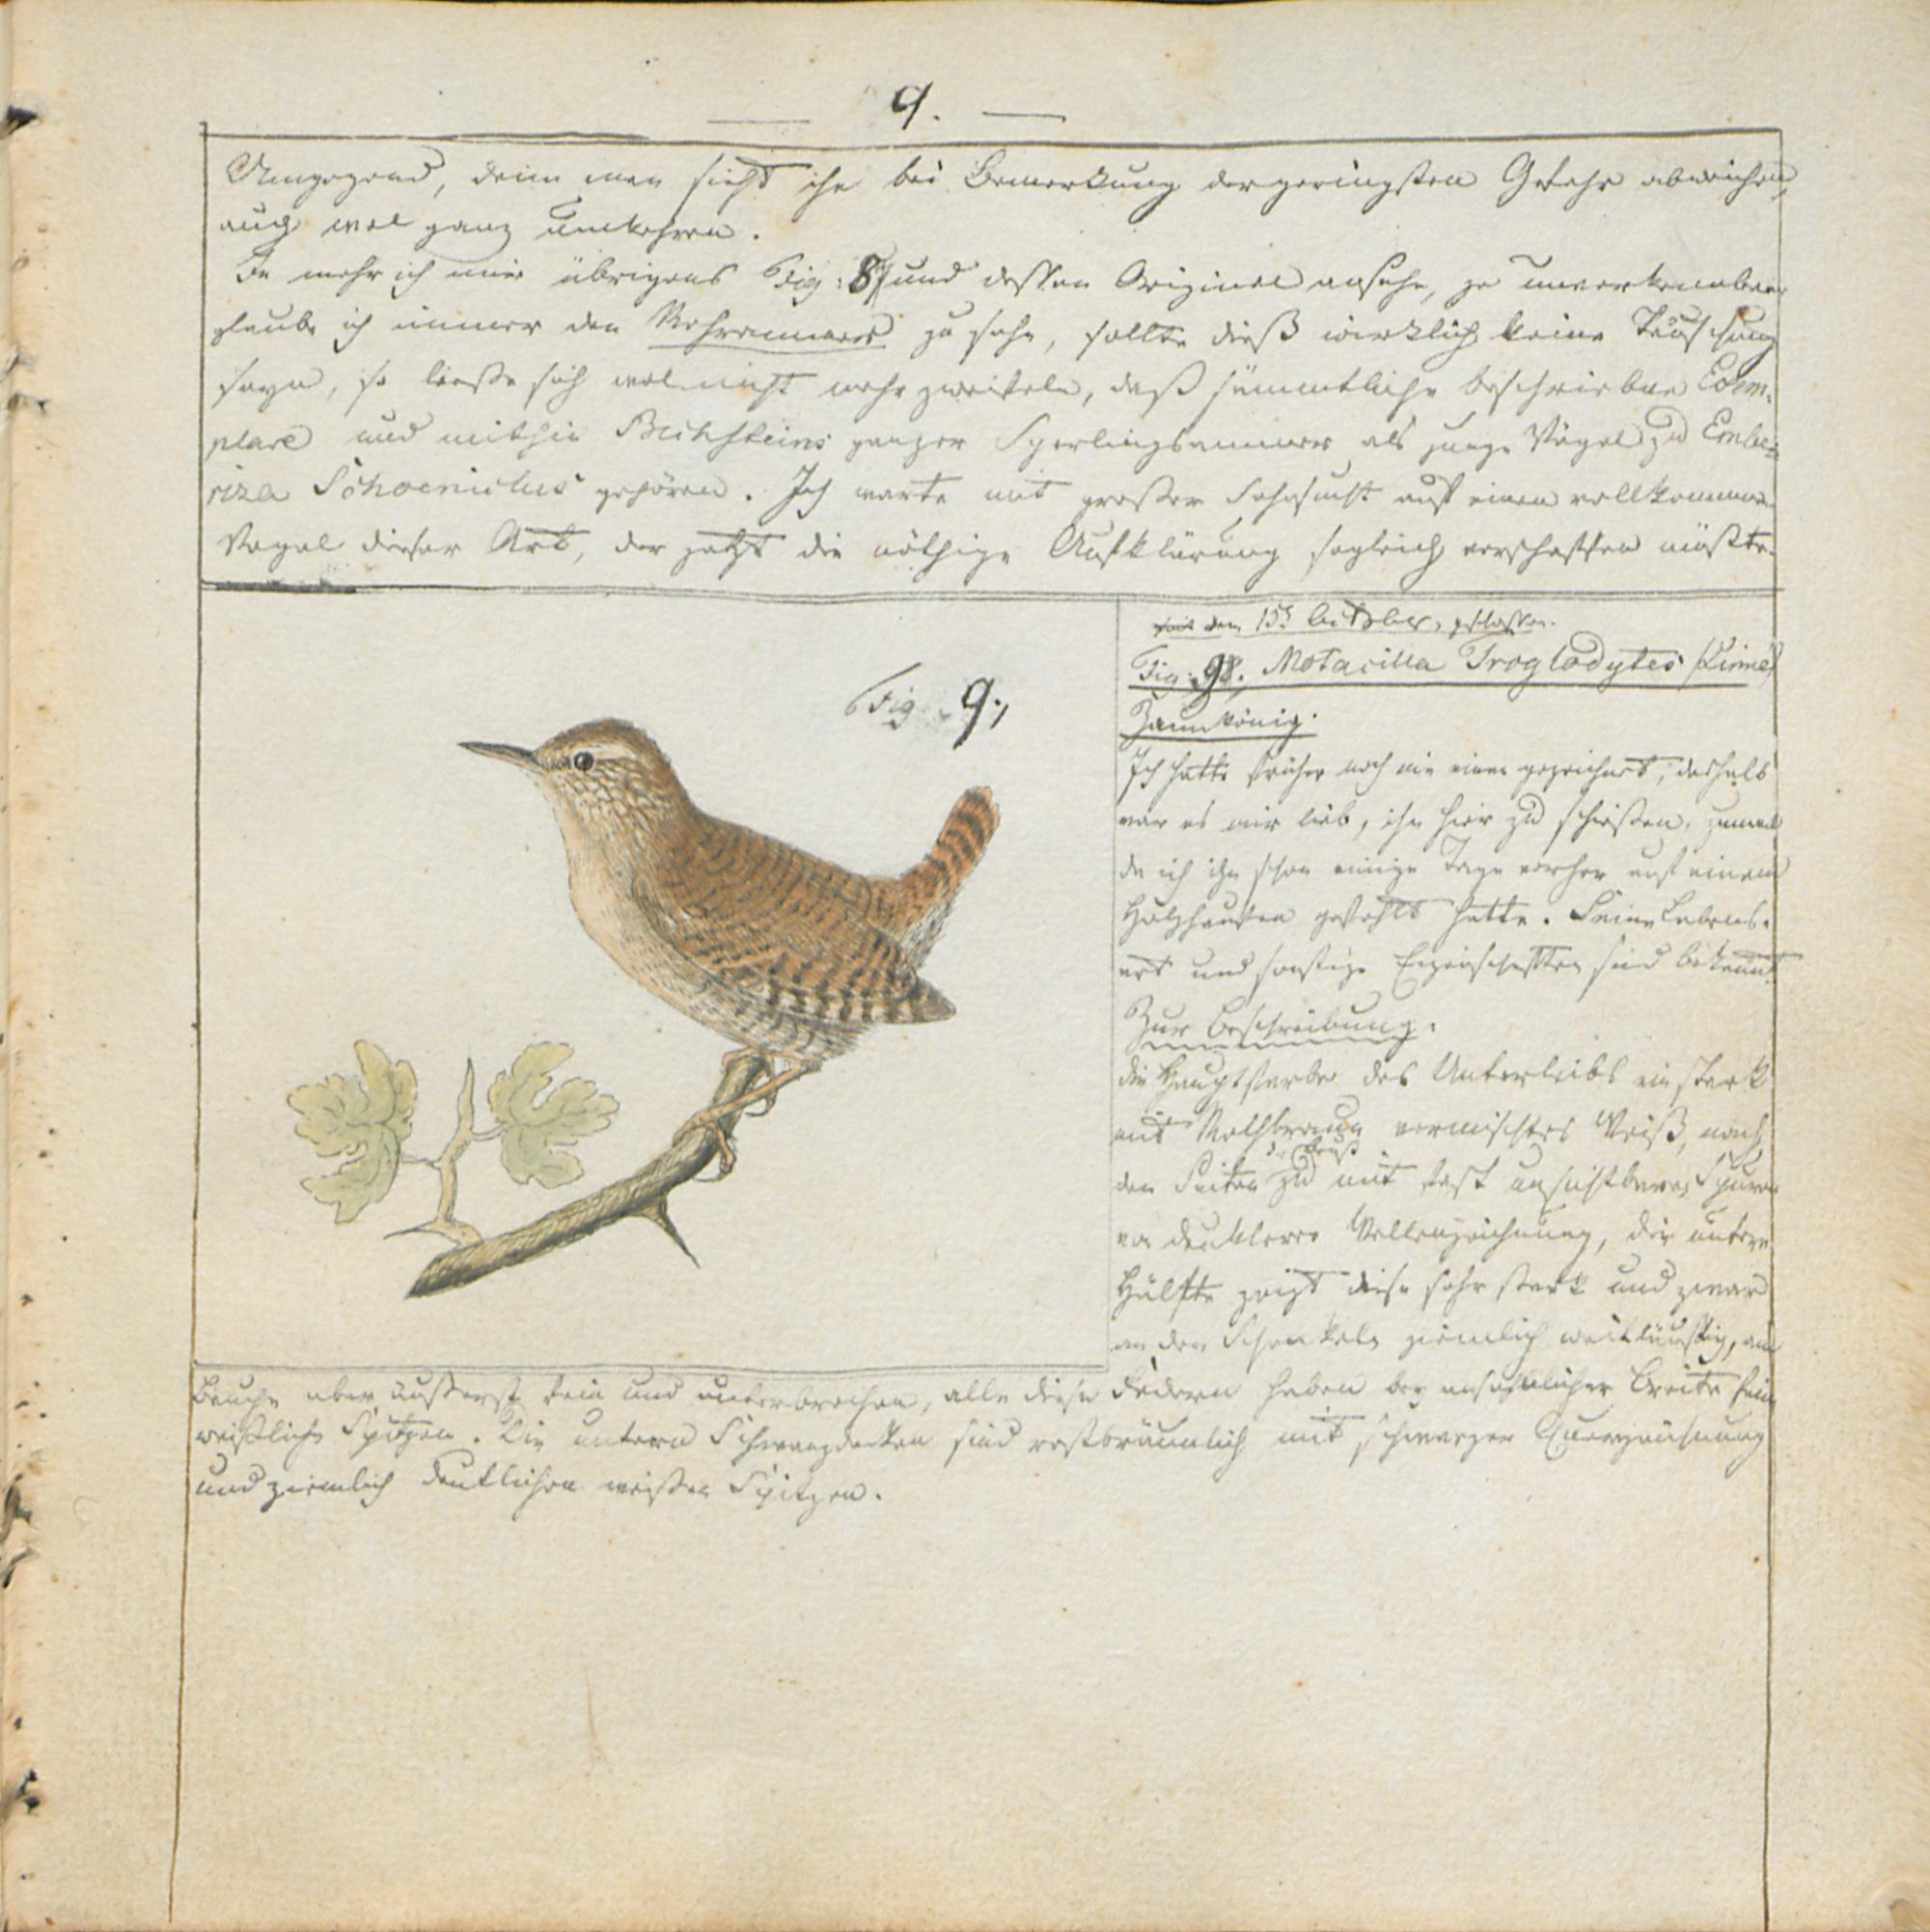 9.
Umgegend, denn man sieht ihn bei Bemerkung der geringsten Gefahr abweichen,
auch wol ganz umkehren.
Je mehr ich mir übrigens Fig: 8, und dessen Original ansehe, je unverkennbarer
glaube ich immer den Rohrammer zu sehn, sollte dieß wirklich keine Täuschung
seyn, so ließe sich wol nicht mehr zweifeln, daß sämmtliche beschriebne Exem-
plare und mithin Bechsteins ganzer Sperlingsammer als junge Vögel zu Embe-
riza Schoeniclus gehören. Ich warte mit großer Sehnsucht auf einen vollkommnen
Vogel dieser Art, der jetzt die nöthige Aufklärung sogleich verschaffen müßte.
Fig. 9.,
den 15t October, geschossen.
Fig: 9., Motacilla Troglodytes (Linné)
Zaunkönig.
Ich hatte früher noch nie einen gezeichnet, deshalb
war es mir lieb, ihn hier zu schießen, zumal
da ich ihn schon einige Tage vorher auf einem
Holzhaufen gefehlt hatte. Seine Lebens-
art und sonstige Eigenschaften sind bekannt.
Zur Beschreibung.
die Hauptfarbe des Unterleibs ein stark
mit Rothbraun vermischtes Weiß, nach
der Brust
den Seiten zu mit fast unsichtbaren Spuren
von dunklerer Wellenzeichnung, die untere
Hälfte zeigt diese sehr stark und zwar
an den Schenkeln ziemlich weitläuftig, am
Bauche aber äußerst fein und unterbrochen, alle diese Federn haben bey ansehnlicher Breite fein
weißliche Spitzen. Die untern Schwanzdecken sind rostbräunlich mit schwarzer Querzeichnung
und ziemlich deutlichen weißen Spitzen.